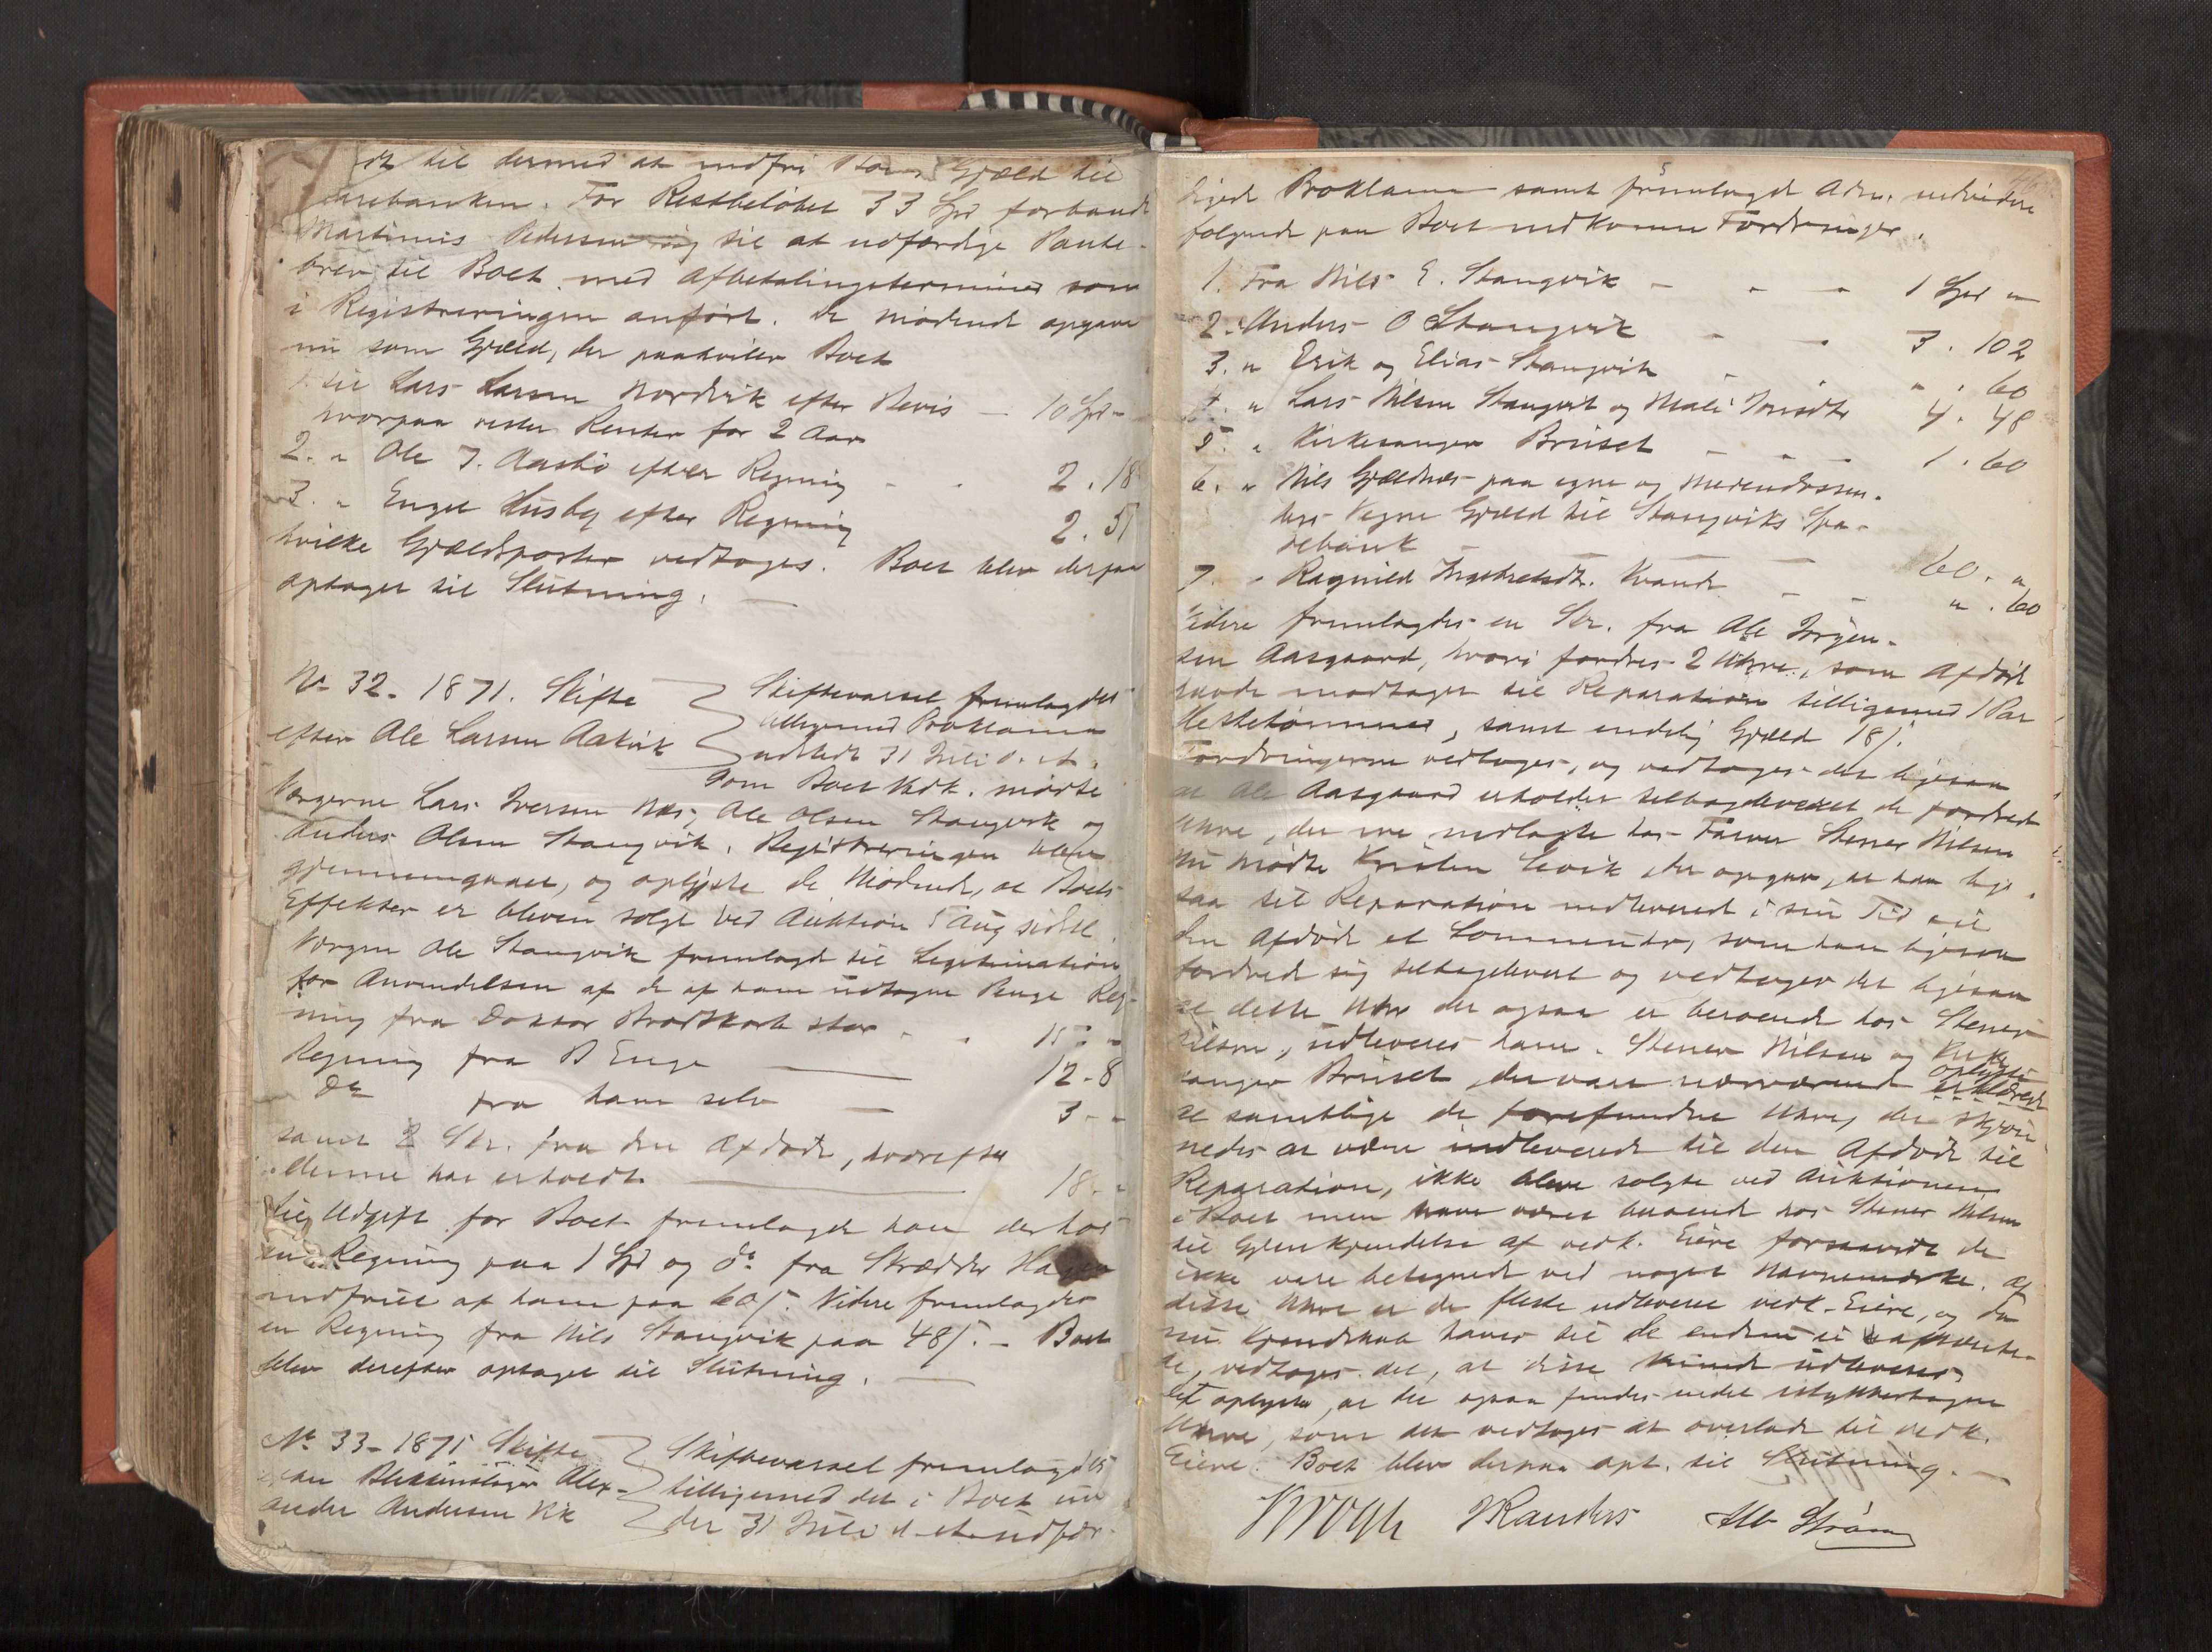 til dermed at indfri Boets Gjæld til
Sparebanken. For Restbeløbet 33 Spd forbandt
Martinus Pedersen sig til at udfærdige Pante-
brev til Boet med Afbetalingsterminer som
i Registreringen anført. De mødende opgave
nu som Gjæld, der paahviler Boet
1. til Lars Larsen Nordvik efter Bevis — 10 Spd "
hvorpaa rester Renter for 2 Aar
2. " Ole J. Aasbø efter Regning - - 2. 18
3. " Engel Husby efter Regning 2. 51
hvilke Gjældsposter vedtoges. Boet blev derpaa
optaget til Slutning. —
No 32 - 1871. Skifte
efter Ole Larsen Aakvik
Skiftevarsel fremlagdes
tilligemed Proklama
udstedt 31 Juli d. A.
som Boet vedk. mødte
Værgerne Lars Iversen Næs, Ole Olsen Stangvik og
Anders Olsen Stangvik. Registreringen blev
gjennemgaaet, og oplyste de Mødende, at Boets
Effekter er bleven solgt ved Auktion 5 Aug sidstl.
Værgen Ole Stangvik fremlagde til Legitimation
for Anvendelsen af de af ham indtagne Penge Reg-
ning fra Doktor stor - - 15 - "
Regning fra B Enge — 12 - 8
Do fra ham selv — 3 - "
samt 2 Skr. fra den Afdøde, hvorefter
denne har erholdt — 18 - "
Til Udgift for Boet fremlagde han derhos
en Regning paa 1 Spd og do fra Skrædder
indfriet af ham paa 60 ß. Videre fremlagdes
en Regning fra Nils Stangvik paa 48 ß. — Boet
blev derefter optaget til Slutning. —
No 33 - 1871 Skifte
efter Alex-
ander Andersen Vik
Skiftevarsel fremlagdes
tilligemed det i Boet un-
der 31 Juli d. A. udfær-
digede Proklama samt fremlagde Adm. vedvidere
følgende paa Boet indkomne Fordringer.
1. Fra Nils E. Stangvik - - - 1 Spd "
2. " Anders O Stangvik - - 3. 102
3. " Erik og Elias Stangvik - - " . 60
4. " Lars Nilsen Stangvik og Mali Jonsdtr 4. 48
5. " Kirkesanger Bruset - - - 1. 60
6. " Nils Gjeldnes paa egne og Medinteressen-
ters Vegne Gjæld til Stangviks Spa-
rebank — 60. "
7. " Ragnild Ingebretsdtr. Kvande - - " . 60
Videre fremlagdes en Skr. fra Ole Jørgen-
sen Aasgaard, hvori fordres 2 Uhre, som Afdøde
havde modtaget til Reparation tilligemed 1 Par
Hestetømmer, samt endelig Gjæld 18 ß.
Fordringerne vedtoges, og vedtoges det ligesaa
at Ole Aasgaard erholder tilbageleveret de fordrede
Uhre, der ere nedlagte hos Farver Stener Nilsen
Nu mødte Kristen Sevik, der opgav, at han lige-
saa til Reparation indleverede i sin Tid til
den Afdøde et Lommeuhr, som han ligesaa
fordrede sig tilbageleveret og vedtoges det ligesaa
at dette Uhr der ogsaa er beroende hos Stener
Nilsen, udleveres ham. Stener Nilsen og Kirke-
sanger Bruset, der vare nærværende oplyste erklærede
at samtlige de forefundne Uhre, der skjøn-
nedes at være indleverede til den Afdøde til
Reparation, ikke bleve solgte ved Auktionen
i Boet men have været beroende hos Stener Nilsen
til Gjenkjendelse af vedk. Eiere forsaavidt de
ikke vare betegnede ved noget Navnemærke. Af
disse Uhre er de fleste udleveret vedk. Eiere, og da
nu Kjendskab haves til de endnu ei afhente-
de, vedtoges det, at disse kunde udleveres.
Det oplystes, at der ogsaa findes endel istykkertagne
Uhre, som det vedtoges at overlade til vedk.
Eiere. Boet blev derpaa opt. til Slutning. —
Krogh J Randers Strøm